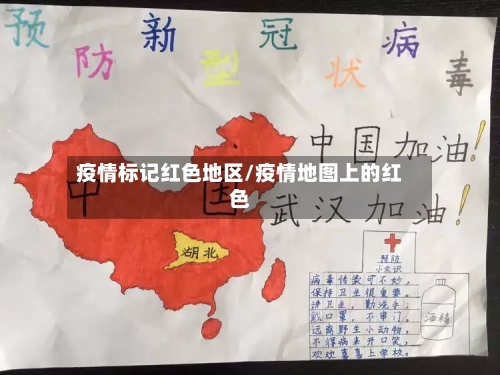 预防新型冠状病毒
中国加油!
疫情标记红色地区/疫情地图上的红
色
中国
武汉加油!
湖北
预防
小常识
病毒传染可不妙，
保持卫生很重要。
讲卫生，勤洗手；
戴口罩，不串门。
远离野生小动物，
不得病来开口笑，
欢欢喜喜上学校。
酒精